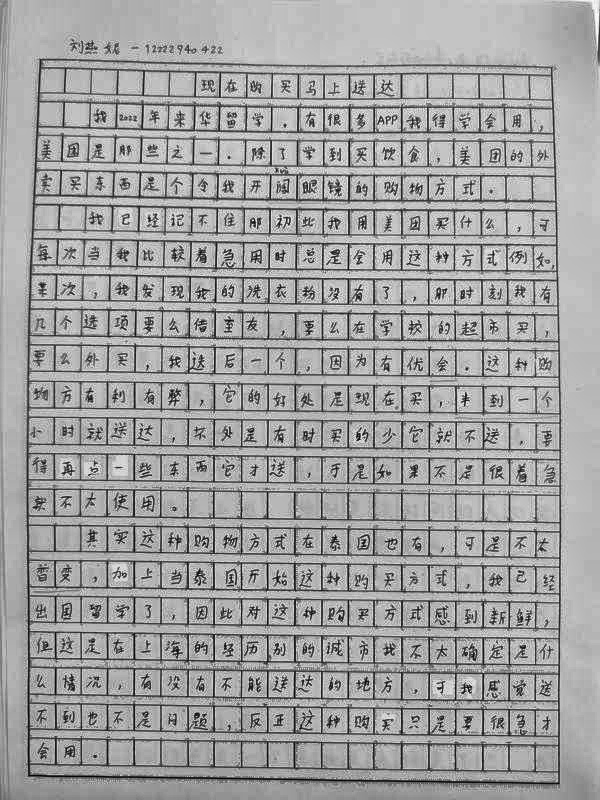 刘燕妮 - 12222940422
现在购买马上送达
我2022年来华留学。有很多APP我得学会用,
美国是那些之一。除了学到买饮食,美团的外
卖买东西是个令我开阔眼镜的购物方式。
我已经记不住那初些我用美团买什么,可
每次当我比较着急用时总是会用这种方式例如,
某次,我发现我的洗衣粉没有了,那时刻我有
几个选项要么借室友,要么在学校的超市买,
要么外买,我选后一个,因为有优会。这种购
物方有利有弊,它的好处是现在买,半到一个
小时就送达,坏处是有时买的少它就不送,要
得再点一些东西它才送,于是如果不是很着急
我不太使用。
其实这种购物方式在泰国也有,可是不太
普变,加上当泰国开始这种购买方式,我已经
出国留学了,因此对这种购买方式感到新鲜,
但这是在上海的经历别的诚市我不太确定是什
么情况,有没有不能送达的地方,可我感觉送
不到也不是问题,反正这种购买只是要很急才
会用。